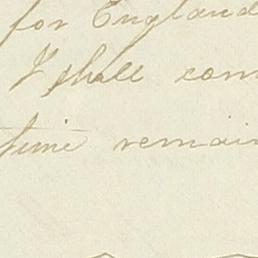 for England
I shall com
time remain